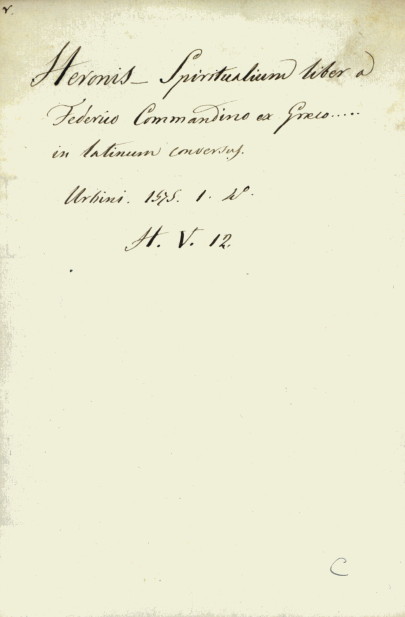 v.
Heronis_ Spiritualium liber a
Federico Commandino ex Græco.....
in latinum conversus.
Urbini. 1575. 1. 4º.
H. V. 12.
C